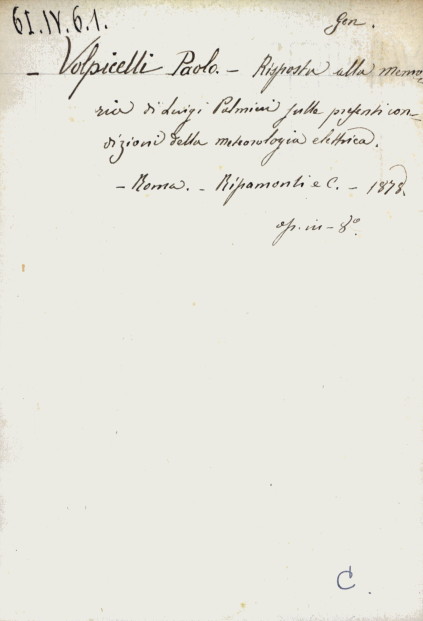 61.IV.6.1.
Gen.
— Volpicelli Paolo. — Risposta alla memo-
ria di Luigi Palmieri sulle presenti con-
dizioni della meteorologia elettrica.
— Roma. — Ripamonti e C. — 1878.
op. in-8.º
C